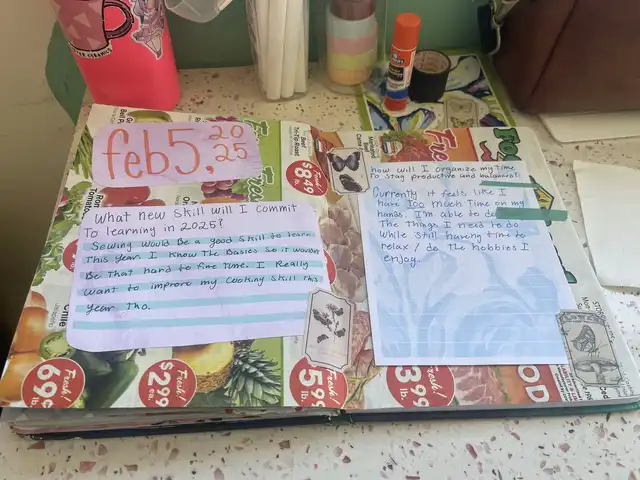 feb 5, 2025
What new skill will I commit
To learning in 2025?
Sewing would be a good skill to learn
This year. I know the basics so it wouldn't
Be that hard to fine tune. I Really
want to improve my cooking skill this
year tho.
how will I organize my time
to stay productive and balanced?
Currently it feels like I
have too much time on my
hands. I'm able to do
The things I need to do
while still having time to
relax / do the hobbies I
enjoy.
Beef
Tri-Tip Roast
$8.49
lb.
Fresh!
69¢
lb.
Fresh!
$2.99
ea.
Fresh!
5.99
lb.
Fresh!
3.99
lb.
Jalapeño